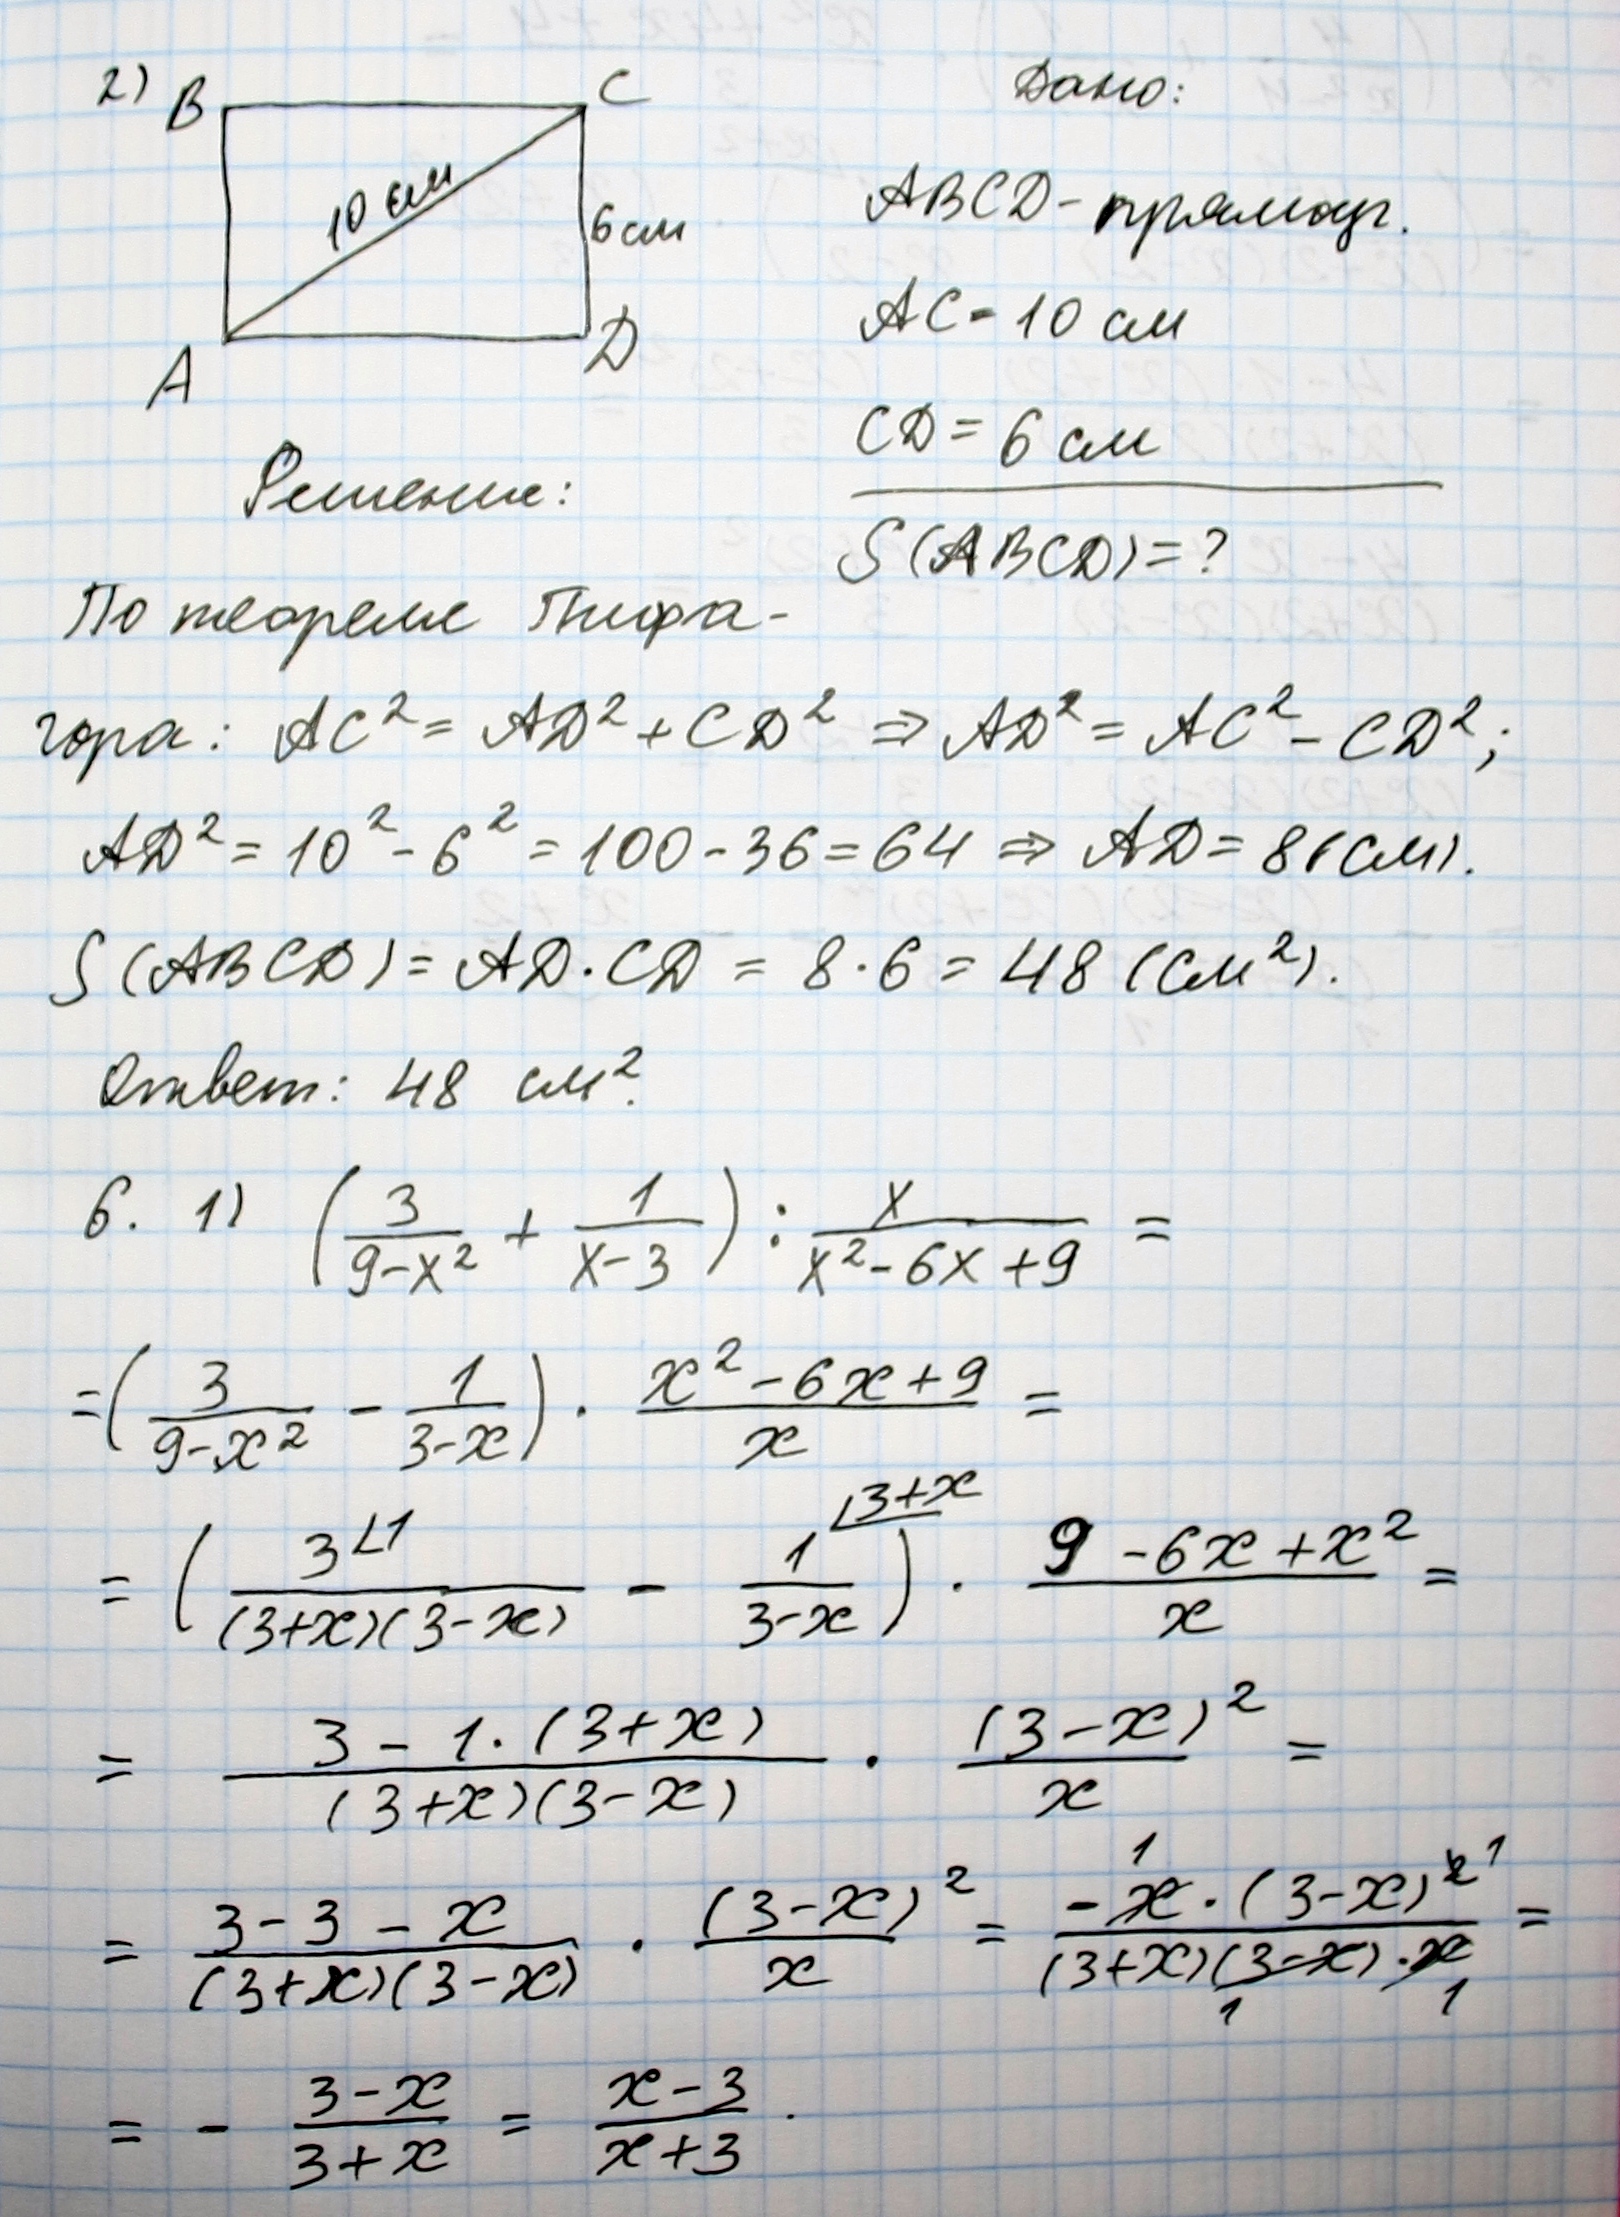 2) B C Дано:
10 см
6 см
A D
ABCD - прямоуг.
AC = 10 см
CD = 6 см
Решение:
S(ABCD) = ?
По теореме Пифа-
гора: AC² = AD² + CD² ⇒ AD² = AC² - CD²;
AD² = 10² - 6² = 100 - 36 = 64 ⇒ AD = 8 (см).
S(ABCD) = AD · CD = 8 · 6 = 48 (см²).
Ответ: 48 см².
6. 1) (3/(9-x²) + 1/(x-3)) : x/(x²-6x+9) =
= (3/(9-x²) - 1/(3-x)) · (x²-6x+9)/x =
= (3∠1/((3+x)(3-x)) - 1∠3+x/(3-x)) · (9-6x+x²)/x =
= (3 - 1·(3+x))/((3+x)(3-x)) · (3-x)²/x =
= (3-3-x)/((3+x)(3-x)) · (3-x)²/x = (-x¹·(3-x)²¹)/((3+x)(3-x)₁·x₁) =
= - (3-x)/(3+x) = (x-3)/(x+3).